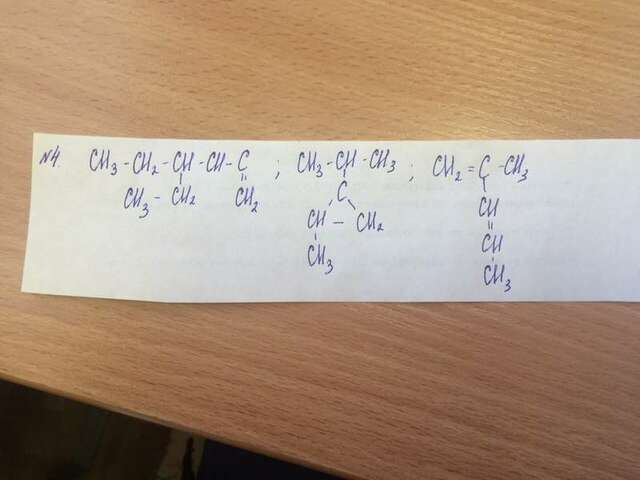 №4. CH₃-CH₂-CH-CH-C ; CH₃-CH-CH₃ ; CH₂=C-CH₃
CH₃-CH₂ CH₂ C CH
CH-CH₂ CH
CH₃ CH₃